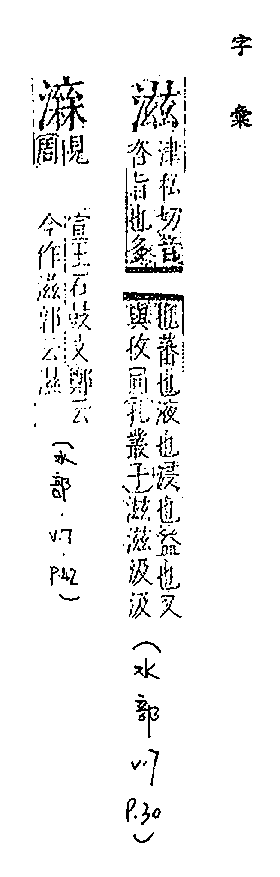 字彙
滋
津私切音
咨旨也多
也蕃也液也浸也益也又
與孜同孔叢子滋滋汲汲
(水部 v.7 P.30)
見
周
宣王石鼓文鄭云
今作滋郭云滋
(水部.v.7.P.42)